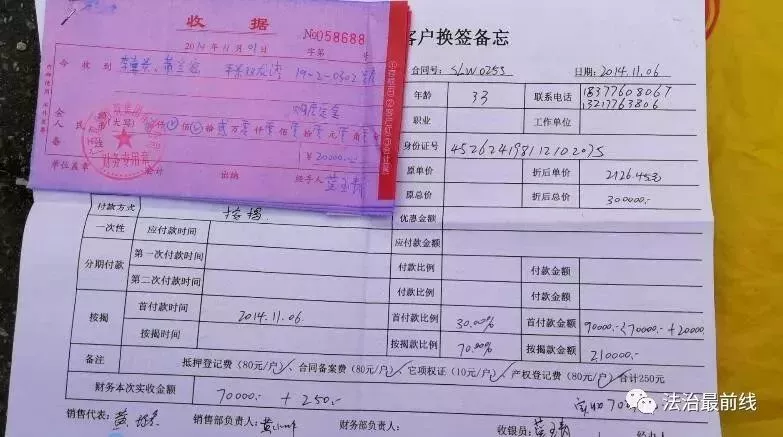 收 据
No058688
2014年11月01日 字第 号
今收到 19-2-0302
购房定金
人民币(大写) 仟 佰 拾 贰 万零仟零佰零拾零元零角
¥20000.
财务专用章
单位盖章 会计 出纳 经手人
客户换签备忘
合同号: SLW0255 日期: 2014.11.06
年龄 33 联系电话 18377608067
13217763806
职业 工作单位
身份证号
原单价 折后单价 2126.45元
原总价 折后总价 300000.-
付款方式 按揭 优惠金额
一次性 应付款时间 应付款金额
分期付款 第一次付款时间 付款比例 付款金额
第二次付款时间 付款比例 付款金额
按揭 首付款时间 2014.11.06. 首付款比例 30.00% 首付款金额 90000.-(70000.-+20000
按揭时间 按揭款比例 70.00% 按揭款金额 210000.-
备注 抵押登记费(80元/户)、合同备案费(80元/户)、它项权证(10元/户)、产权登记费(80元/户)合计250元
财务本次实收金额 70000.- + 250.-
销售代表: 销售部负责人: 财务部负责人: 收银员:
法治最前线